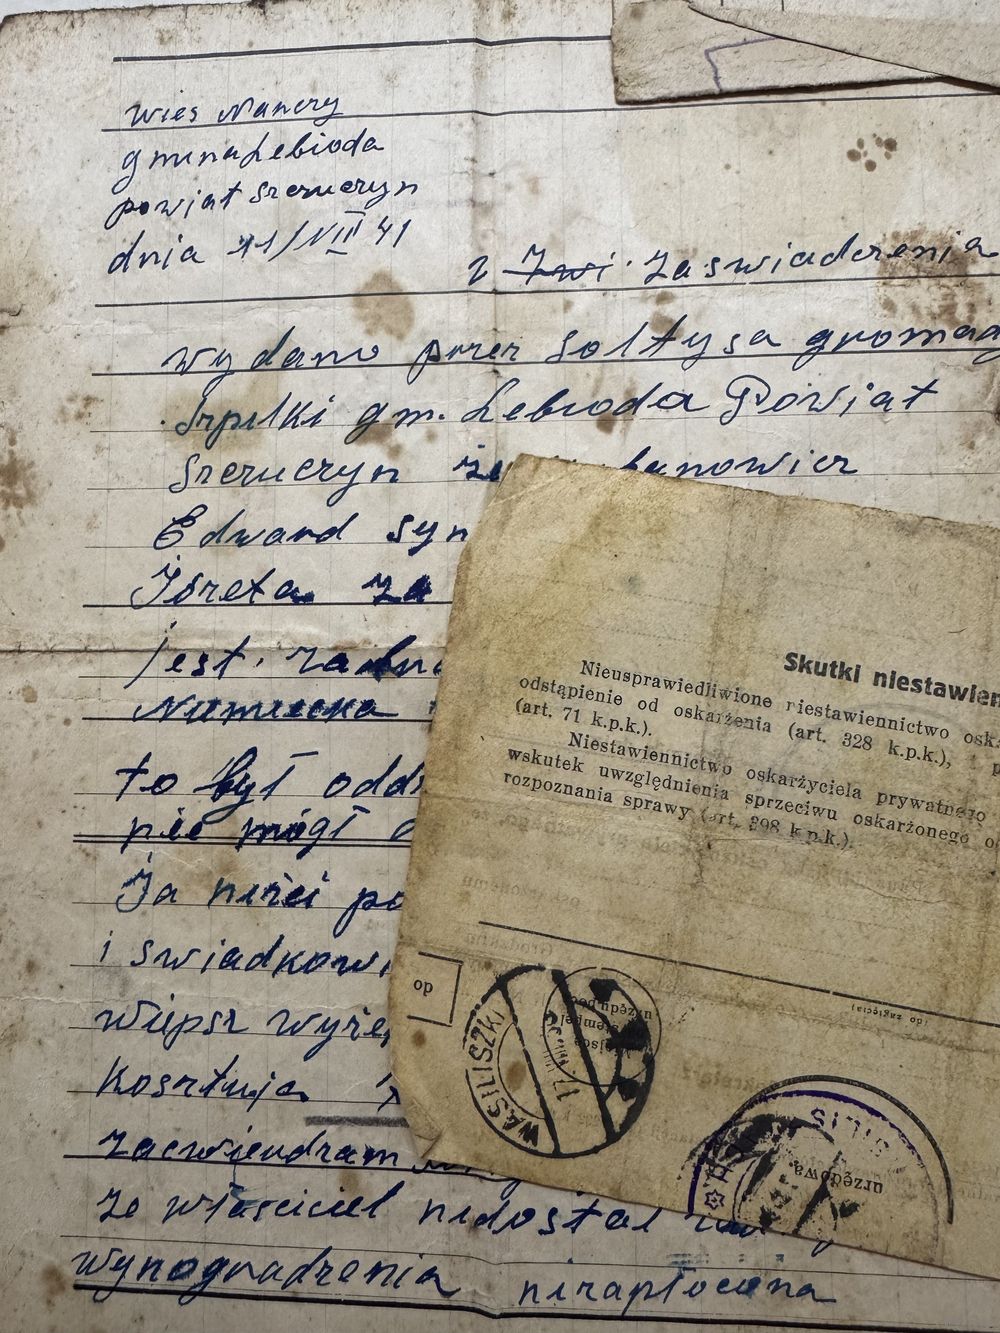 wies Mancry
gmina Lebioda
powjat Szcruczyn
dnia 11/VII 41
z Zwi. Zaswiadczenia
wydano przez Soltysa gromag
Szpilki gm. Lebioda Powjat
Szcruczyn że banowicz
Edward syn
Józeta za
jest. żadn
Niemiecka
to był odd
nie mógł
Ja niżej po
i swiadkowi
wiepsz wyże
kosztuja
zacwiendzam
że właściciel nidostał
wynogradzenia nizapłocona
Skutki niestawien
Nieusprawiedliwione niestawiennictwo oska
odstąpienie od oskarżenia (art. 328 k.p.k.), p
(art. 71 k.p.k.).
Niestawiennictwo oskarżyciela prywatnego
wskutek uwzględnienia sprzeciwu oskarżonego o
rozpoznania sprawy (art. 398 k.p.k.).
do
(do zagięcia)
WASILISZKI
Miejsce
stempel
urzędu poc
SILIS
urzędowa